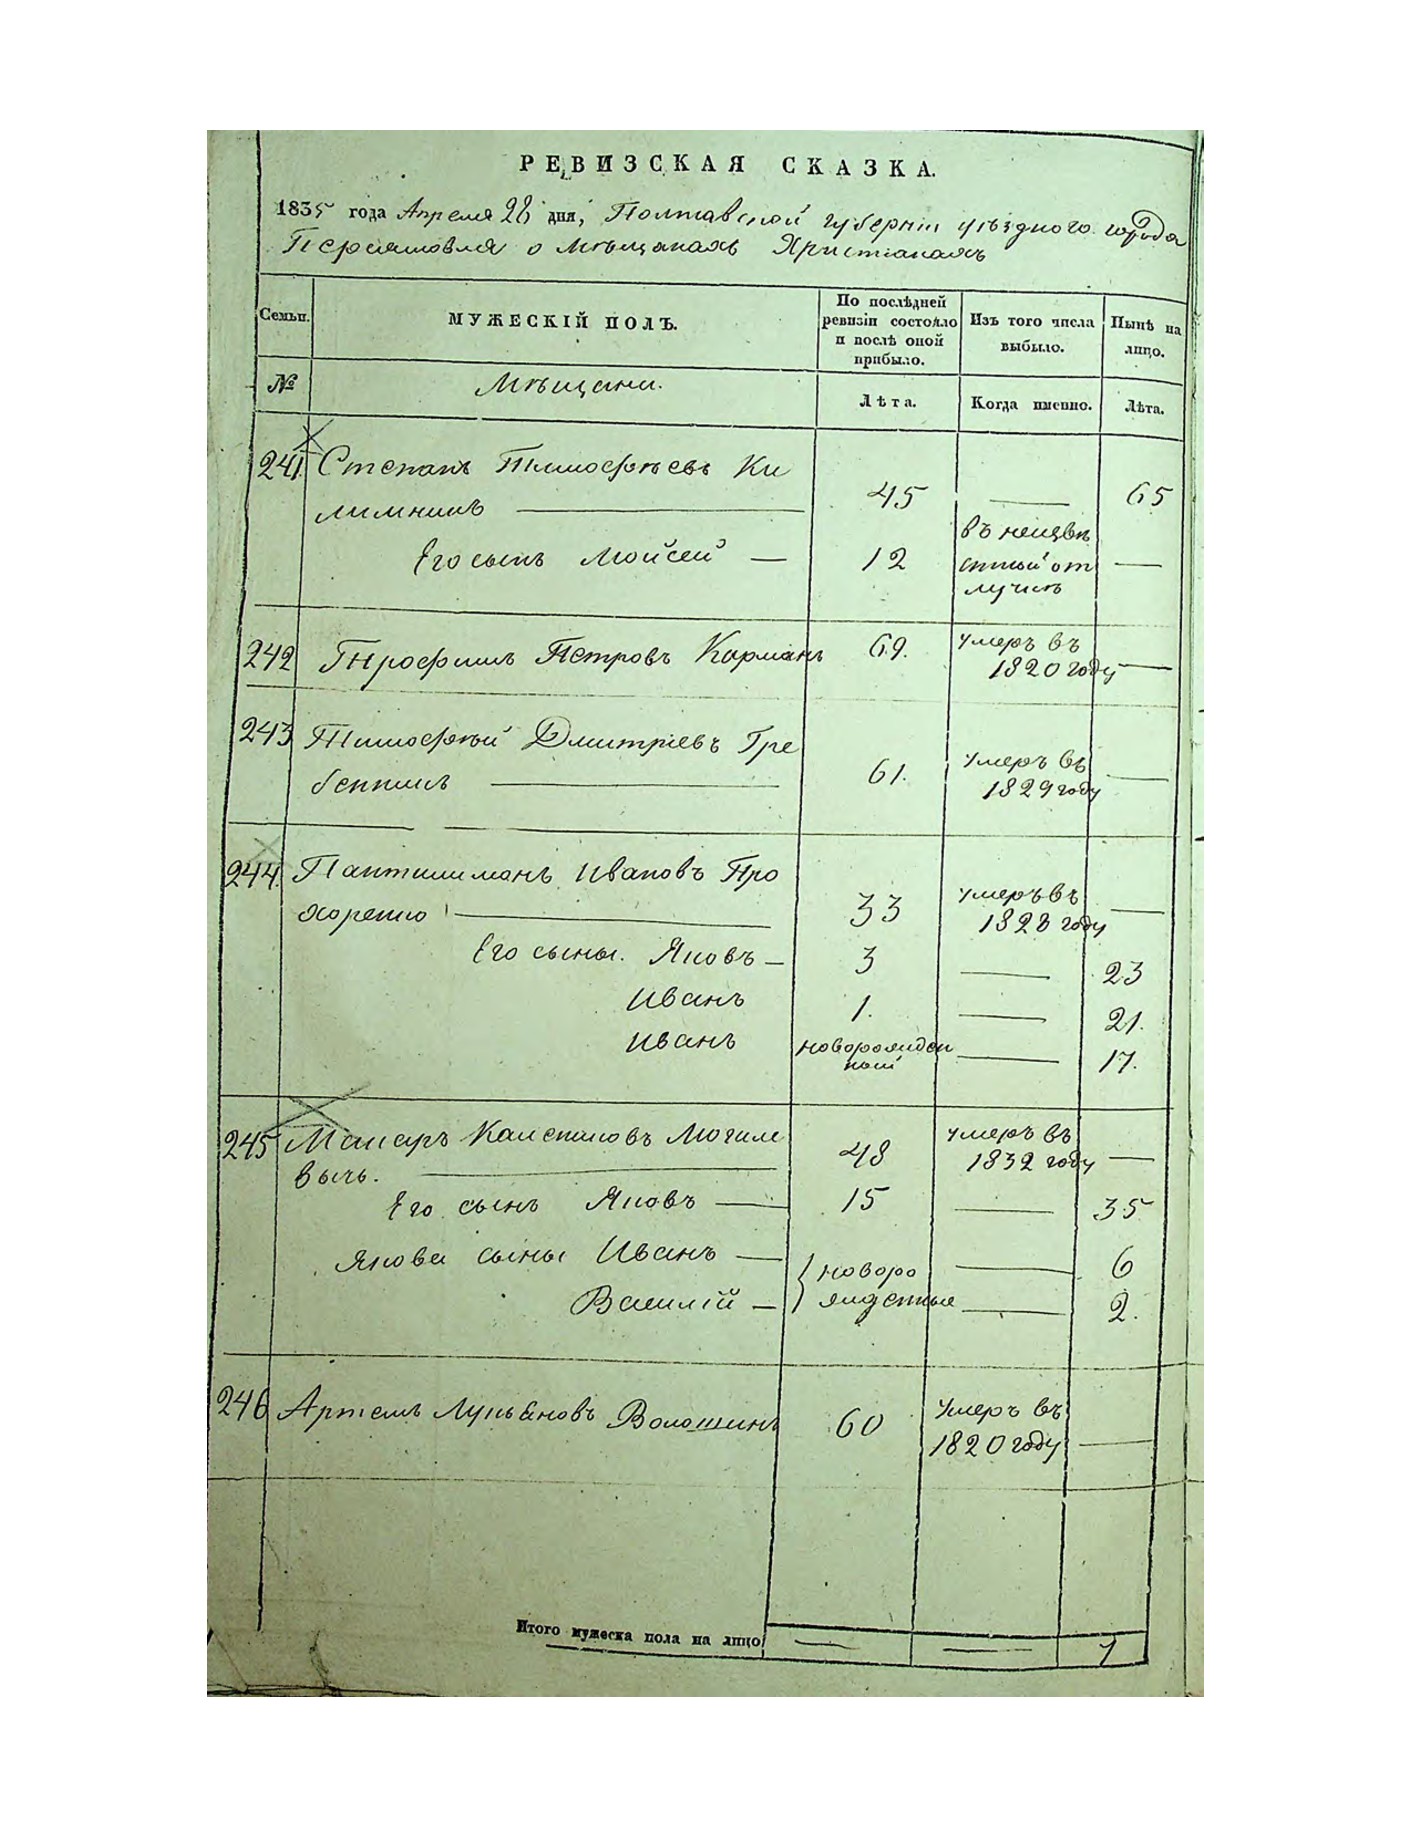 РЕВИЗСКАЯ СКАЗКА.
1835 года Апреля 28 дня, Полтавской губернiи уѣзднаго города
Переяславля о мѣщанахъ Христiанахъ
Семьи. МУЖЕСКIЙ ПОЛЪ. По послѣдней ревизiи состояло и послѣ оной прибыло. Изъ того числа выбыло. Нынѣ на лицо.
№ Мѣщани. Лѣта. Когда именно. Лѣта.
241. Степанъ Тимофѣевъ Ки
лимникъ 45 — 65
Его сынъ Мойсей — 12 въ неизвѣ
стной от —
лучкѣ
242 Трофимъ Петровъ Карманъ 69. умеръ въ
1820 году —
243 Тимофѣй Дмитрiевъ Гре
бенникъ 61. умеръ въ
1829 году —
244. Пантилимонъ Ивановъ Про
хоренко 33 умеръ въ
1828 году —
Его сыны. Яковъ — 3 — 23
Иванъ 1. — 21.
Иванъ новорожден
ный — 17.
245 Макаръ Могиле
вычь. 48 умеръ въ
1832 году —
Его сынъ Яковъ — 15 — 35
Якова сыны Иванъ — новоро — 6
Василiй — жденные — 2.
246 Артемъ Лукьяновъ Волошинъ 60 Умеръ въ
1820 году —
Итого мужеска пола на лицо — — 7